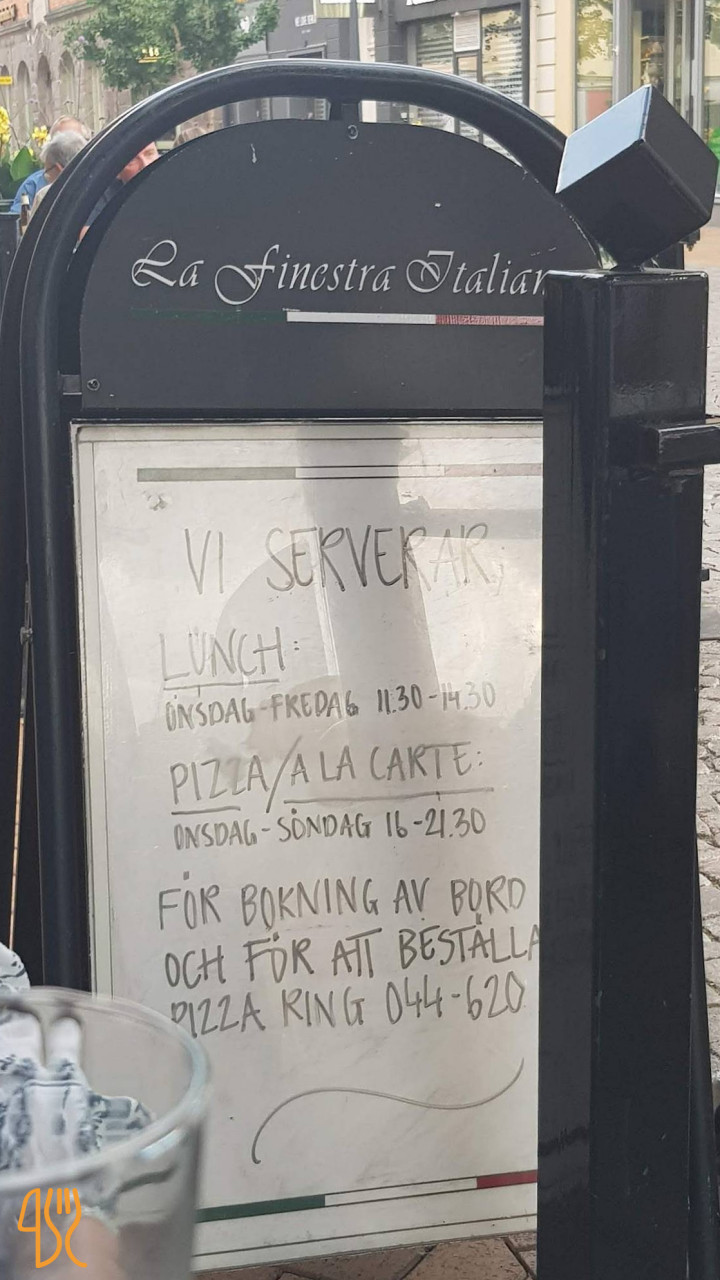 La Finestra Italian
VI SERVERAR;
LUNCH:
ONSDAG-FREDAG 11.30-14.30
PIZZA/A LA CARTE:
ONSDAG-SÖNDAG 16-21.30
FÖR BOKNING AV BORD
OCH FÖR ATT BESTÄLLA
PIZZA RING 044-620